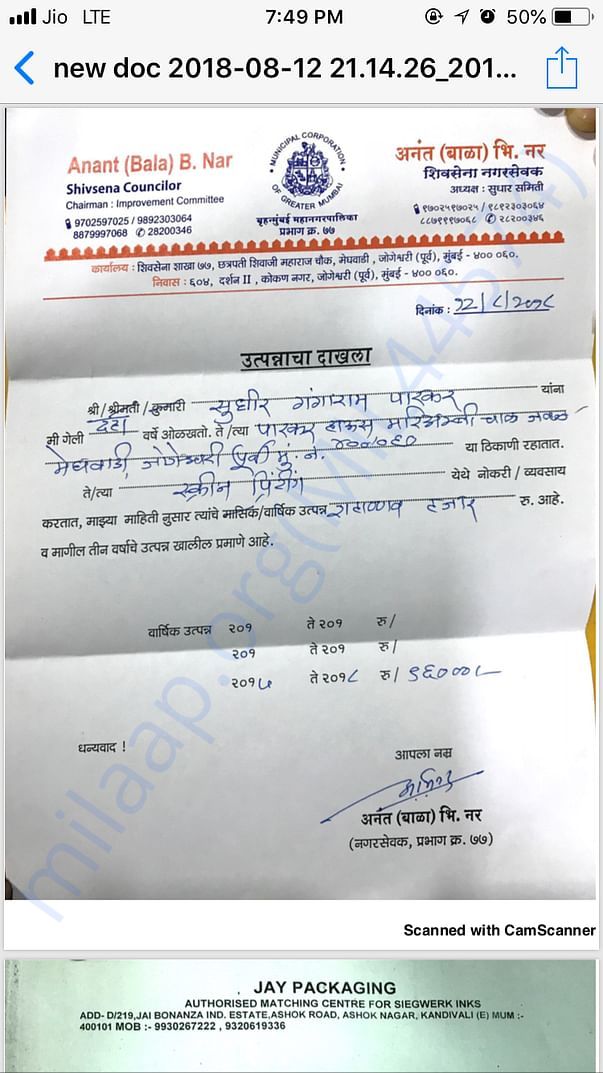 Jio LTE 7:49 PM 50%
new doc 2018-08-12 21.14.26_201...
Anant (Bala) B. Nar
Shivsena Councilor
Chairman : Improvement Committee
9702597025 / 9892303064
8879997068 28200346
MUNICIPAL CORPORATION OF GREATER MUMBAI
बृहन्मुंबई महानगरपालिका
प्रभाग क्र. ७७
अनंत (बाळा) भि. नर
शिवसेना नगरसेवक
अध्यक्ष : सुधार समिती
९७०२५९७०२५ / ९८९२३०३०६४
८८७९९९७०६८ २८२००३४६
कार्यालय : शिवसेना शाखा ७७, छत्रपती शिवाजी महाराज चौक, मेघवाडी, जोगेश्वरी (पूर्व), मुंबई - ४०० ०६०.
निवास : ६०४, दर्शन II , कोकण नगर, जोगेश्वरी (पूर्व), मुंबई - ४०० ०६०.
दिनांक : १२/८/२०१८
उत्पन्नाचा दाखला
श्री/श्रीमती/कुमारी सुधीर गंगाराम पारकर यांना
मी गेली दहा वर्षे ओळखतो. ते/त्या पारकर हाऊस चाळ जवळ
मेघवाडी, जोगेश्वरी पूर्व मुं. नं. ४०००६० या ठिकाणी रहातात.
ते/त्या स्क्रीन प्रिंटींग येथे नोकरी / व्यवसाय
करतात, माझ्या माहिती नुसार त्यांचे मासिक/वार्षिक उत्पन्न शहाण्णव हजार रु. आहे.
व मागील तीन वर्षाचे उत्पन्न खालील प्रमाणे आहे.
वार्षिक उत्पन्न २०१ ते २०१ रु/
२०१ ते २०१ रु/
२०१७ ते २०१८ रु/ ९६०००/-
धन्यवाद !
आपला नम्र
अनंत (बाळा) भि. नर
(नगरसेवक, प्रभाग क्र. ७७)
Scanned with CamScanner
JAY PACKAGING
AUTHORISED MATCHING CENTRE FOR SIEGWERK INKS
ADD- D/219,JAI BONANZA IND. ESTATE,ASHOK ROAD, ASHOK NAGAR, KANDIVALI (E) MUM :-
400101 MOB :- 9930267222 , 9320619336